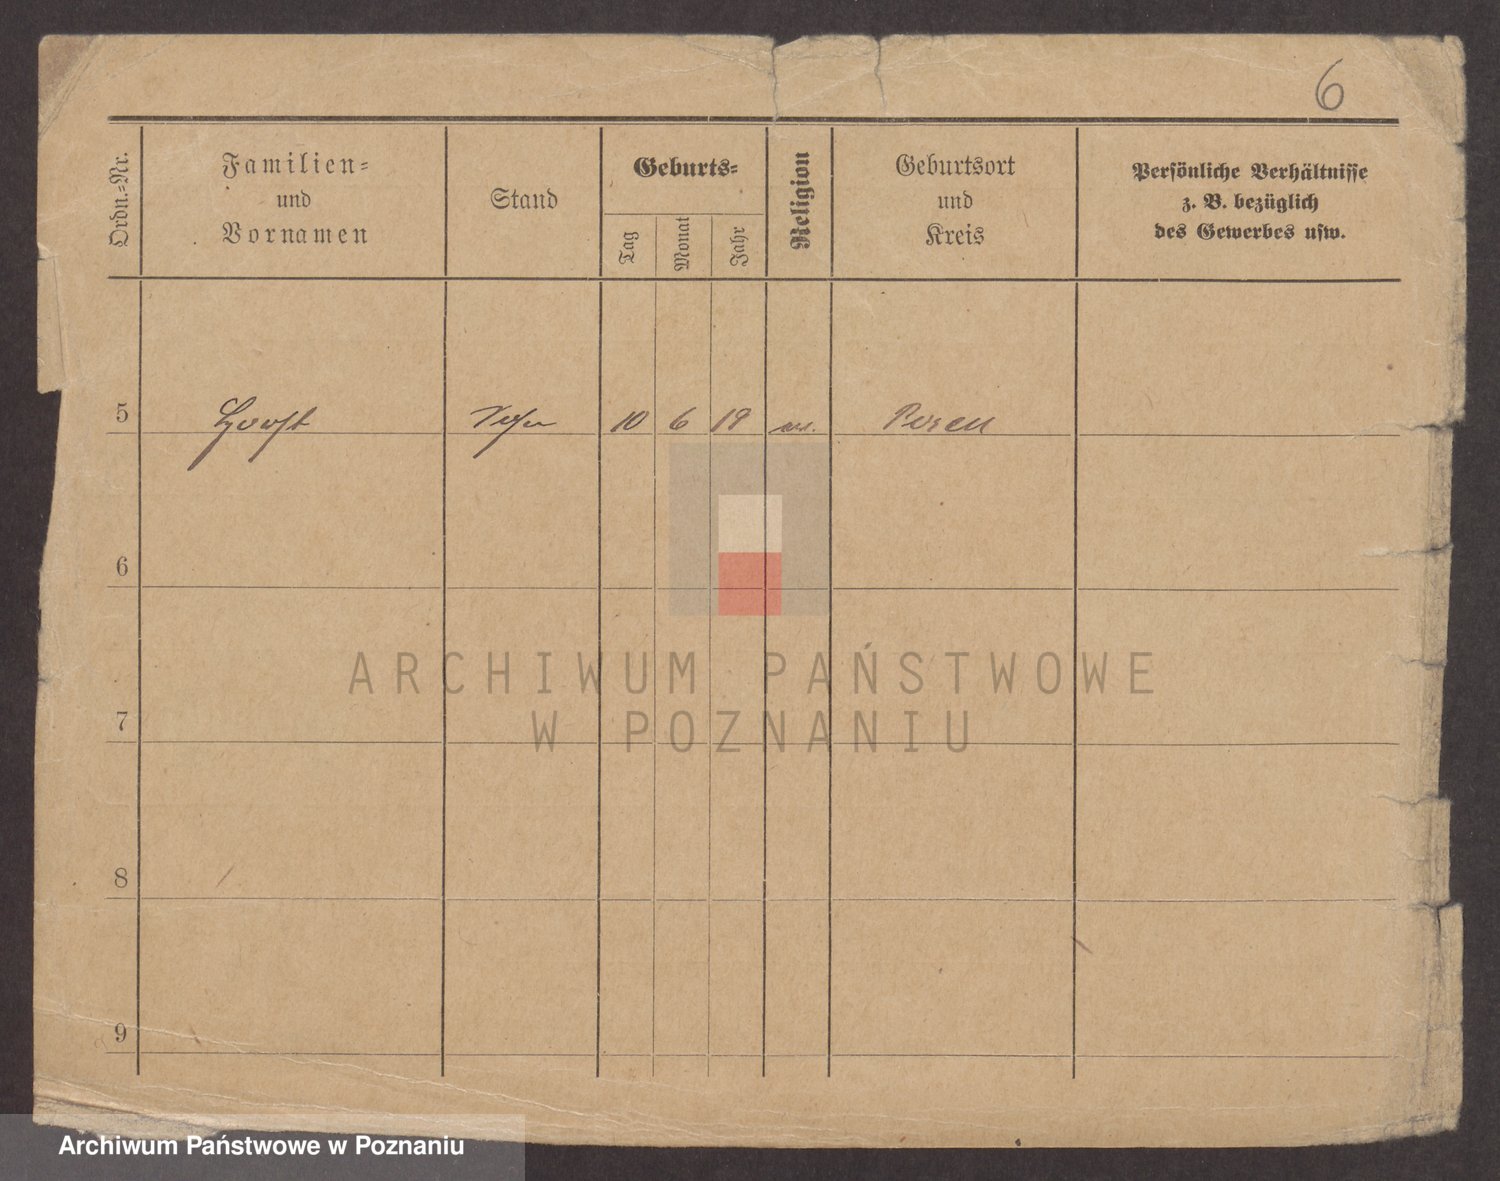 6
Ordn.=Nr.
Familien=
und
Vornamen
Stand
Geburts=
Tag
Monat
Jahr
Religion
Geburtsort
und
Kreis
Persönliche Verhältnisse
z. B. bezüglich
des Gewerbes usw.
5 Horst 10 6 19 Posen
6
7
8
9
ARCHIWUM PAŃSTWOWE
W POZNANIU
Archiwum Państwowe w Poznaniu